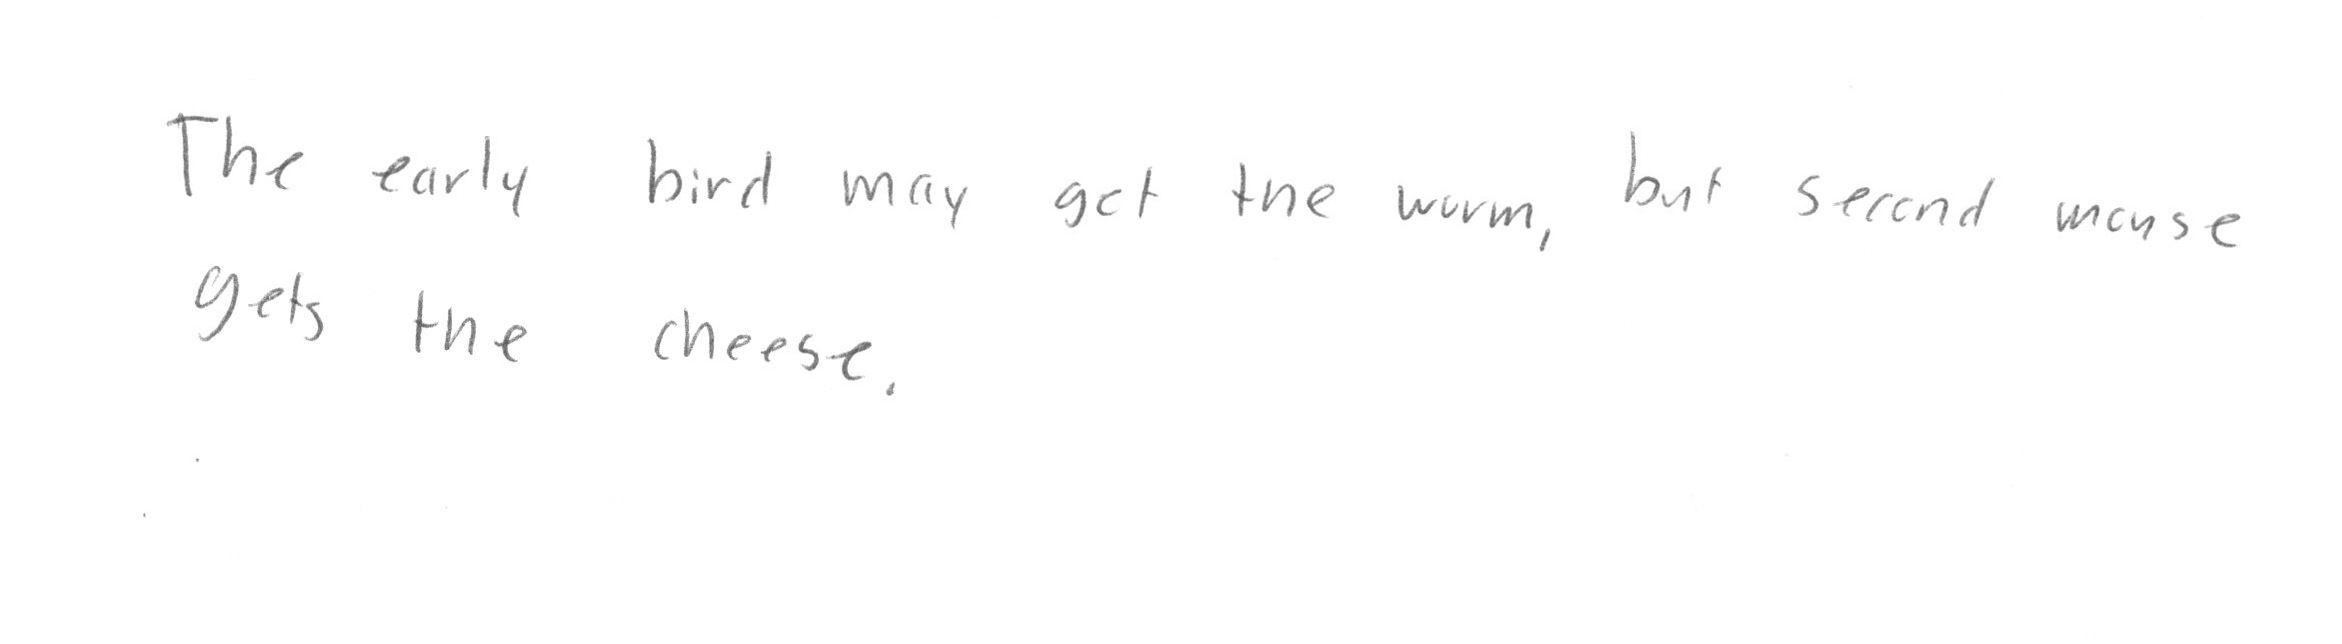 The early bird may get the worm, but second mouse
gets the cheese.